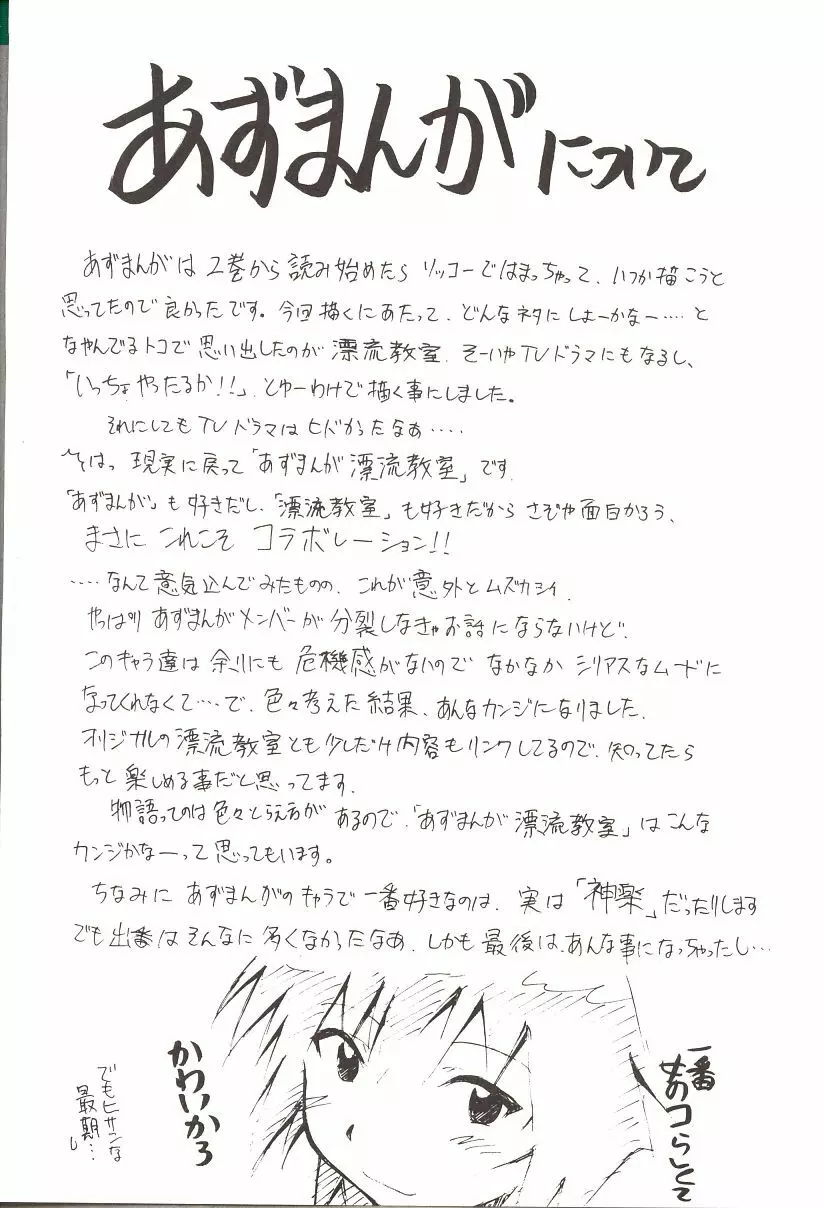 あずまんがについて
あずまんがは2巻から読み始めたらソッコーではまっちゃって、いつか描こうと
思ってたので良かったです。今回描くにあたって、どんなネタにしよーかなー‥‥と
なやんでるトコで思い出したのが漂流教室、そーいやTVドラマにもなるし、
「いっちょやったるか!!」、とゆーわけで描く事にしました。
それにしてもTVドラマはヒドかったなぁ‥‥
現実に戻って「あずまんが漂流教室」です。
「あずまんが」も好きだし、「漂流教室」も好きだからさぞや面白かろう、
まさにこれこそコラボレーション!!
‥‥なんて意気込んでみたものの、これが意外とムズカシイ。
やっぱりあずまんがメンバーが分裂しなきゃお話にならないけど、
このキャラ達は余りにも危機感がないのでなかなかシリアスなムードに
なってくれなくて‥‥で、色々考えた結果、あんなカンジになりました。
オリジナルの漂流教室とも少しだけ内容もリンクしてるので、知ってたら
もっと楽しめる事だと思ってます。
物語ってのは色々とらえ方があるので、「あずまんが漂流教室」はこんな
カンジかなーって思ってもいます。
ちなみにあずまんがのキャラで一番好きなのは、実は「神楽」だったりします
でも出番はそんなに多くなかったなあ、しかも最後は、あんな事になっちゃったし…
一番
オのコらしくて
かわいかろ
でもヒサンな
最期…し